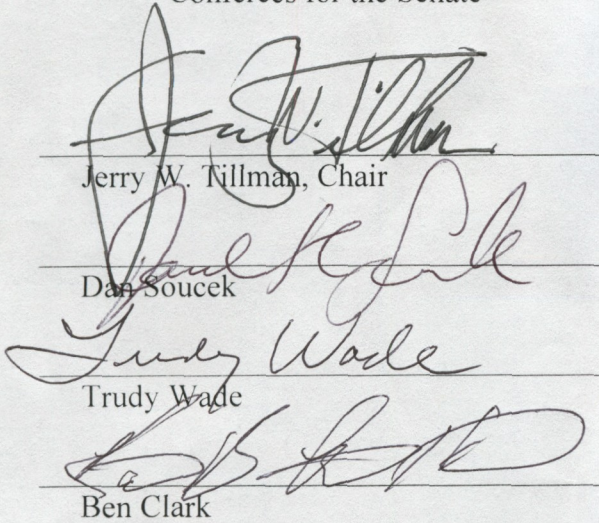 Conferees for the Senate
Jerry W. Tillman
Jerry W. Tillman, Chair
Dan Soucek
Trudy Wade
Trudy Wade
Ben Clark